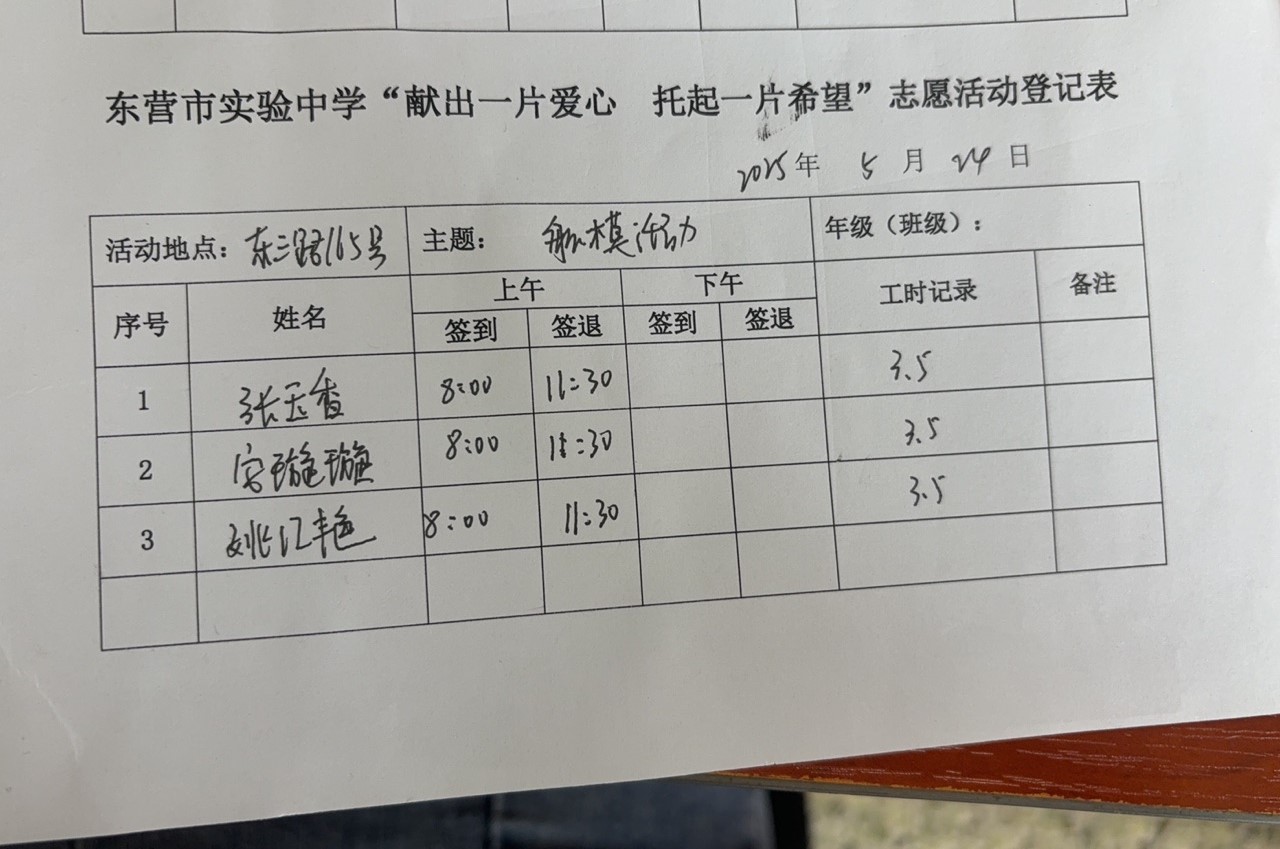 东营市实验中学“献出一片爱心 托起一片希望”志愿活动登记表
2025年 5 月 24 日
活动地点：东三路165号 主题： 航模活动 年级（班级）：
序号 姓名 上午 下午 工时记录 备注
签到 签退 签到 签退
1 张玉香 8:00 11:30 3.5
2 宫璇璇 8:00 11:30 3.5
3 姚江艳 8:00 11:30 3.5